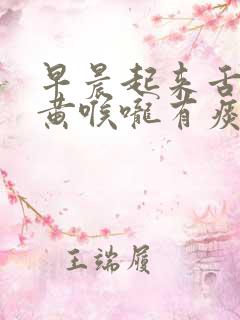 早晨起来舌
黄喉咙有痰
王端履